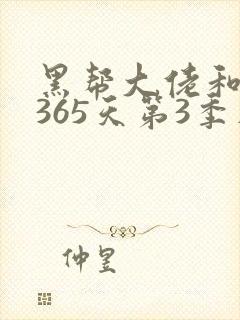 黑帮大佬和
365天第3季
仲昱